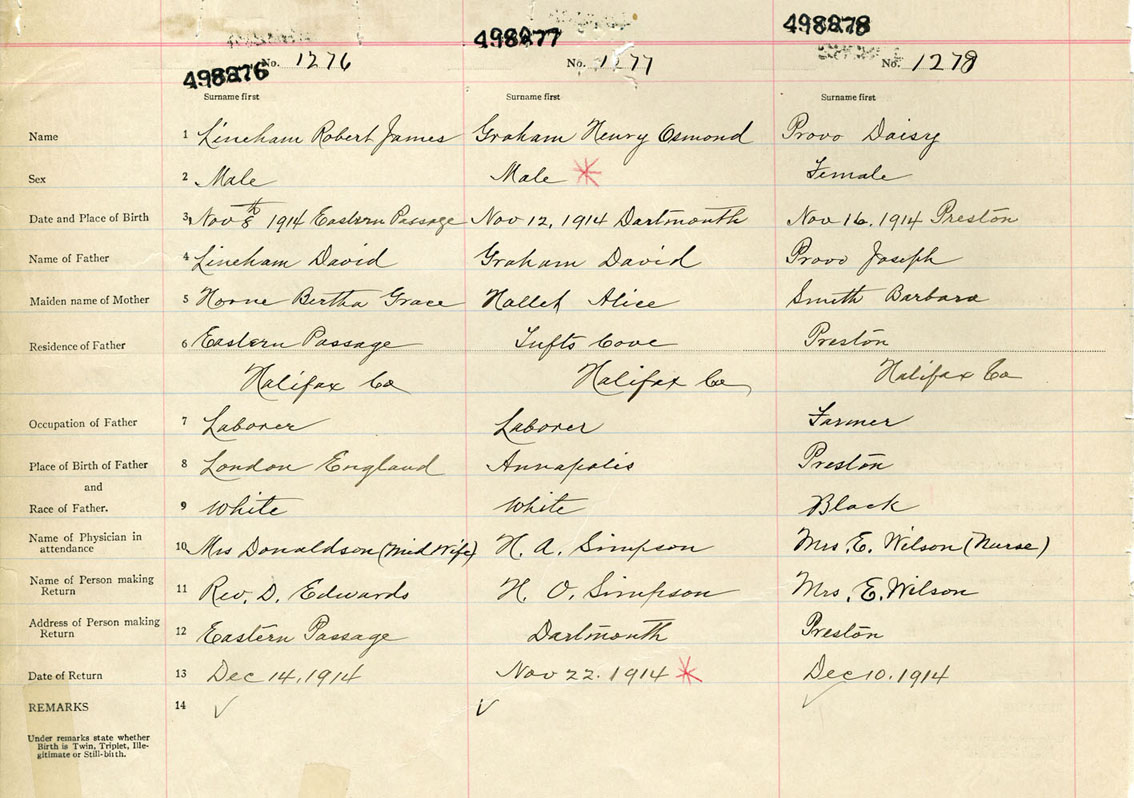 498276 498277 498278
No. 1276 No. 1277 No. 1278
Surname first Surname first Surname first
Name 1 Lineham Robert James Graham Henry Osmond Provo Daisy
Sex 2 Male Male Female
Date and Place of Birth 3 Nov 8th 1914 Eastern Passage Nov 12, 1914 Dartmouth Nov 16, 1914 Preston
Name of Father 4 Lineham David Graham David Provo Joseph
Maiden name of Mother 5 Horne Bertha Grace Hallet Alice Smith Barbara
Residence of Father 6 Eastern Passage Tufts Cove Preston
Halifax Co Halifax Co Halifax Co
Occupation of Father 7 Laborer Laborer Farmer
Place of Birth of Father 8 London England Annapolis Preston
and
Race of Father. 9 White White Black
Name of Physician in
attendance 10 Mrs Donaldson (Mid Wife) H. A. Simpson Mrs. E. Wilson (Nurse)
Name of Person making
Return 11 Rev. D. Edwards H. O. Simpson Mrs. E. Wilson
Address of Person making
Return 12 Eastern Passage Dartmouth Preston
Date of Return 13 Dec 14, 1914 Nov 22. 1914 Dec 10. 1914
REMARKS 14
Under remarks state whether
Birth is Twin, Triplet, Ille-
gitimate or Still-birth.